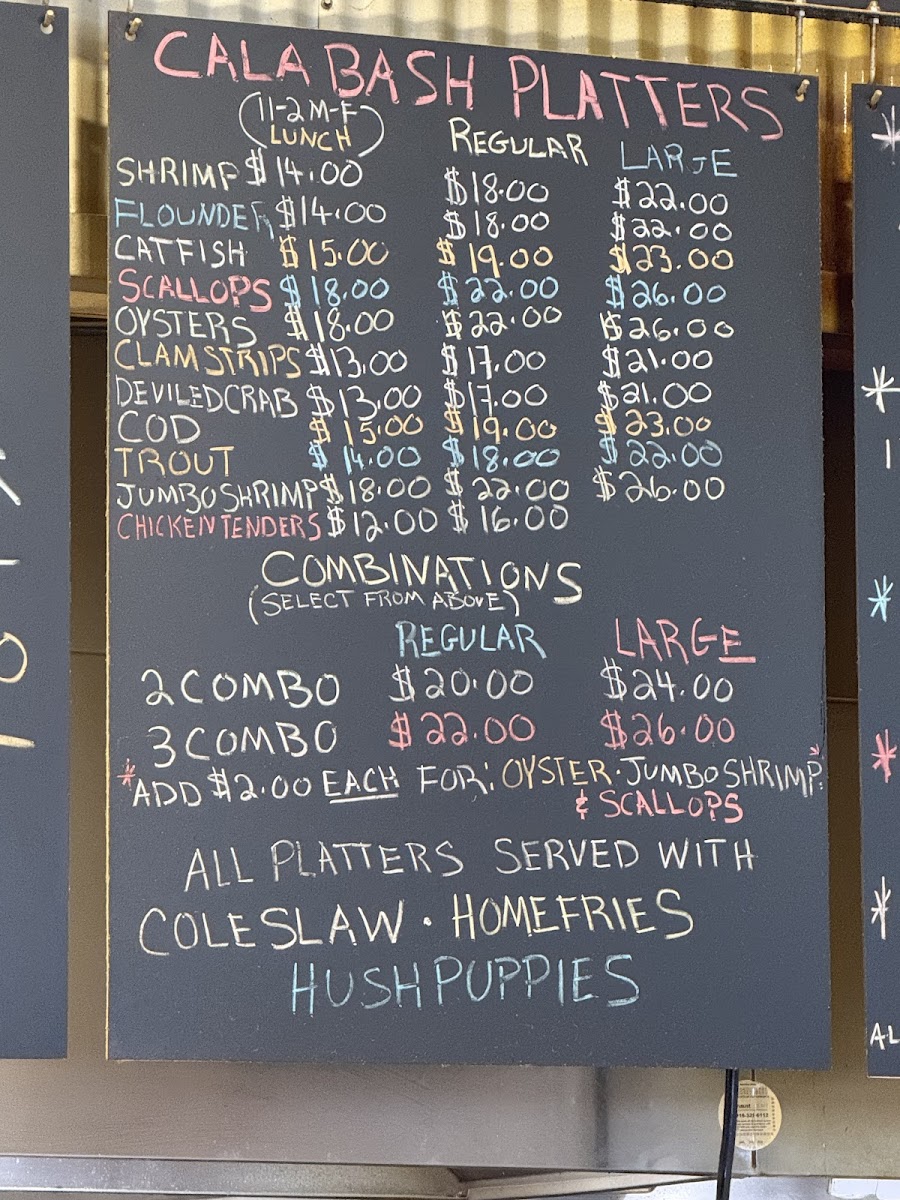 CALABASH PLATTERS
(11-2 M-F LUNCH) REGULAR LARGE
SHRIMP $14.00 $18.00 $22.00
FLOUNDER $14.00 $18.00 $22.00
CATFISH $15.00 $19.00 $23.00
SCALLOPS $18.00 $22.00 $26.00
OYSTERS $18.00 $22.00 $26.00
CLAM STRIPS $13.00 $17.00 $21.00
DEVILED CRAB $13.00 $17.00 $21.00
COD $15.00 $19.00 $23.00
TROUT $14.00 $18.00 $22.00
JUMBO SHRIMP $18.00 $22.00 $26.00
CHICKEN TENDERS $12.00 $16.00
COMBINATIONS
(SELECT FROM ABOVE)
REGULAR LARGE
2 COMBO $20.00 $24.00
3 COMBO $22.00 $26.00
*ADD $2.00 EACH FOR: OYSTER · JUMBO SHRIMP*
& SCALLOPS
ALL PLATTERS SERVED WITH
COLESLAW · HOMEFRIES
HUSHPUPPIES